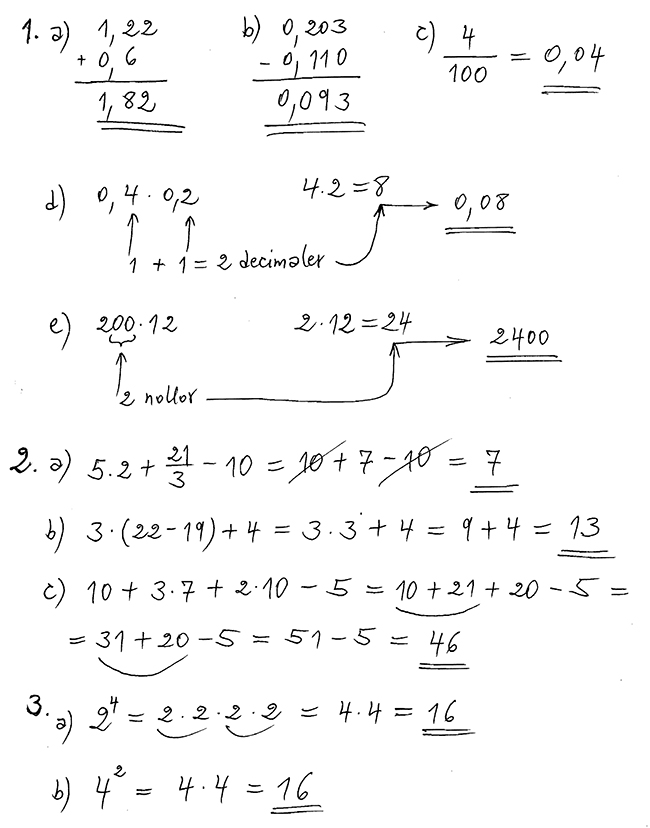 1. a) 1,22 b) 0,203 c) 4/100 = 0,04
+ 0,6 - 0,110
1,82 0,093
d) 0,4 · 0,2 4·2=8 → 0,08
1 + 1 = 2 decimaler
e) 200·12 2·12=24 → 2400
2 nollor
2. a) 5·2 + 21/3 - 10 = 10 + 7 - 10 = 7
b) 3·(22-19)+4 = 3·3 + 4 = 9+4 = 13
c) 10 + 3·7 + 2·10 - 5 = 10+21 + 20 - 5 =
= 31+20 - 5 = 51 - 5 = 46
3. a) 2⁴ = 2·2·2·2 = 4·4 = 16
b) 4² = 4·4 = 16